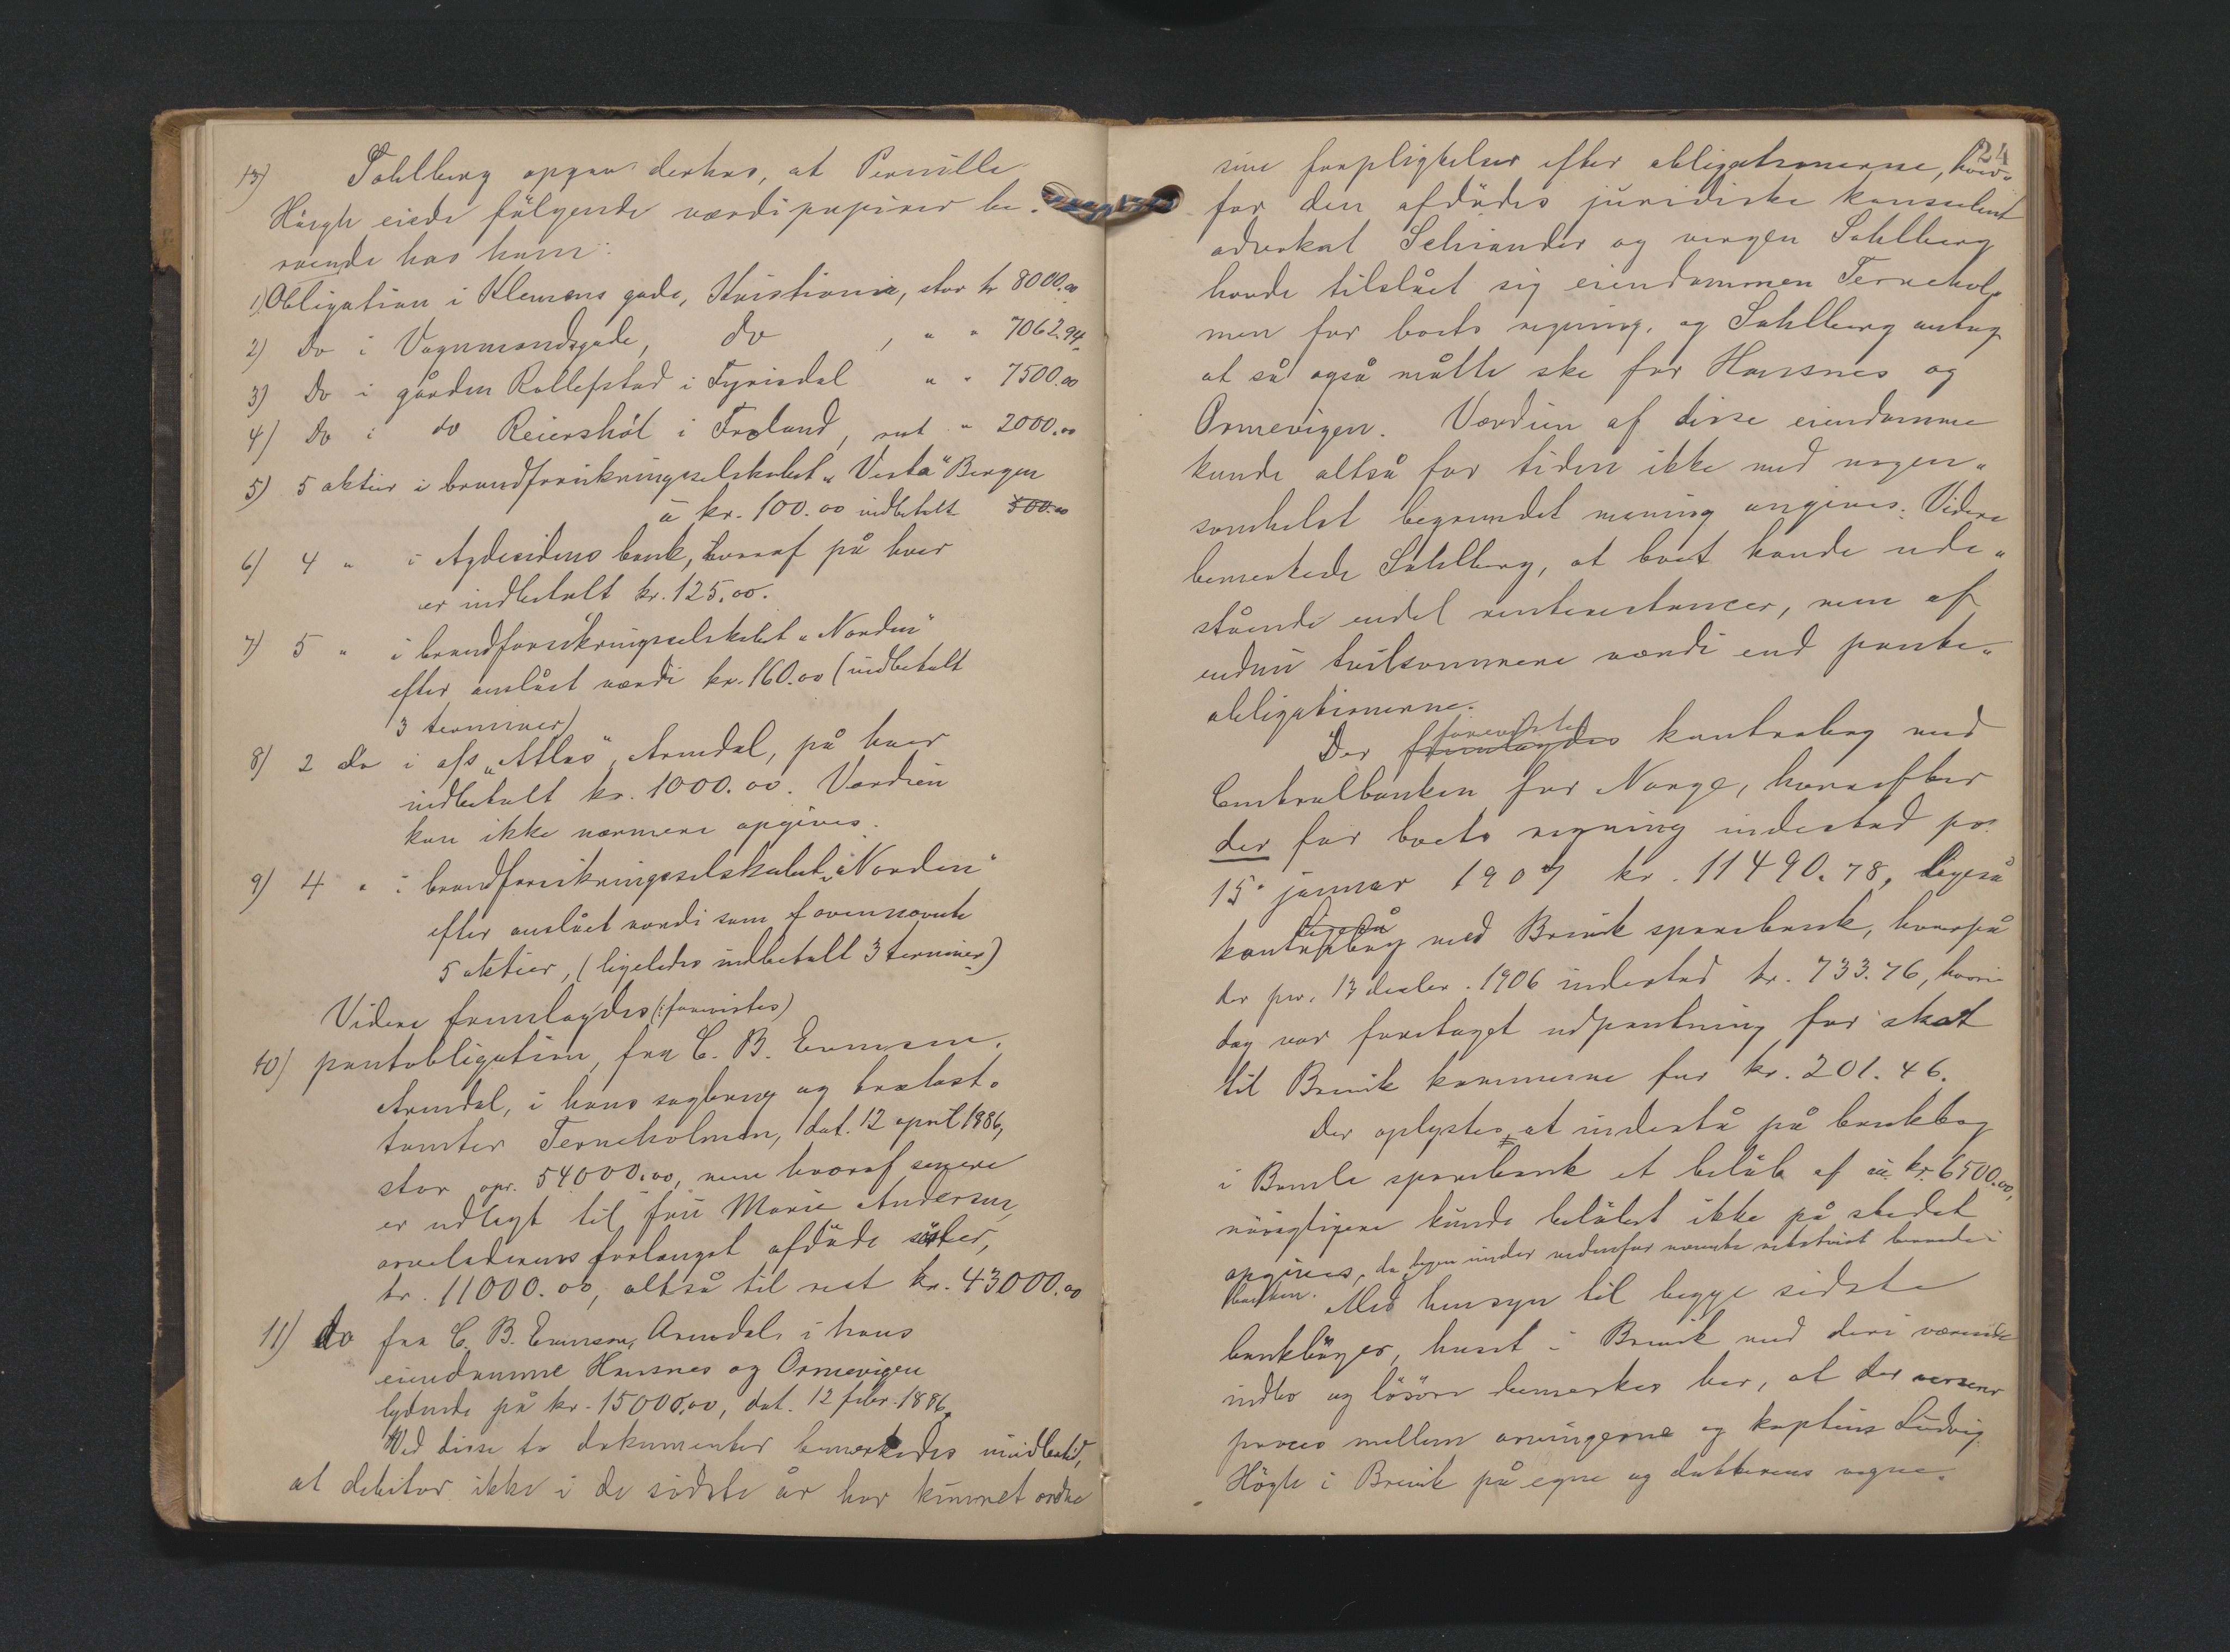 13) Sahlberg opgav derhos, at Pernille
Høegh eiede følgende værdipapirer be-
roende hos ham:
1) Obligation i Klemens gade, Kristiania, stor kr 8000.00
2) Do i Vognmandsgade, do , " " 7062.94
3) Do i gården Rollefstad i Fyrisdal " " 7500.00
4) Do i do Reiershöl i Froland, rest " 2000.00
5) 5 aktier i brandforsikringsselskabet "Vesta" Bergen
à kr. 100.00 indbetalt 500.00
6) 4 " i Agdesidens bank, hvoraf på hver
er indbetalt kr. 125.00.
7) 5 " i brandforsikringsselskabet "Norden"
efter anslået værdi kr. 160.00 (indbetalt
3 terminer)
8) 2 do i a/s "Atlas", Arendal, på hver
indbetalt kr. 1000.00. Værdien
kan ikke nærmere opgives.
9) 4 " i brandforsikringsselskabet "Norden"
efter anslået værdi som f ovennævnte
5 aktier, (ligeledes indbetalt 3 terminer)
Videre fremlagdes (: forevistes)
10) pantobligation, fra C. B. Evensen,
Arendal, i hans sagbrug og trælast-
tomter Terneholmen, dat. 12 april 1886,
stor opr. 54000.00, men hvoraf senere
er udlagt til frü Marie Andersen,
arveladerens forlængst afdøde søster,
kr. 11000.00, altså til rest kr. 43000.00
11) do fra C. B. Evensen, Arendal, i hans
eiendomme Hausnes og Ormevigen
lydende på kr. 15000.00, dat. 12 febr. 1886.
Ved disse to dokumenter bemærkedes imidlertid,
at debitor ikke i de sidste år har kunnet ordne
24
sine forpligtelser efter obligationerne, hvor-
for den afdødes juridiske konsulent
advokat Schiander og vergen Sahlberg
havde tilslået sig eiendommen Ternehol-
men for boets regning, og Sahlberg antog
at så også måtte ske for Hausnes og
Ormevigen. Værdien af disse eiendomme
kunde altså for tiden ikke med nogen-
somhelst begrundet mening angives. Videre
bemerkede Sahlberg, at boet havde ude-
stående endel renterestancer, men af
endnu tvilsommere værdi end pante-
obligationerne.
forevistes
Der fremlagdes kontrabog med
Centralbanken for Norge, hvorefter
der for boets regning indestod pr.
15. januar 1907 kr. 11490.78, ligeså
Ligeså
kontrabog med Brevik sparebank, hvorpå
der pr. 13 decbr. 1906 indestod kr. 733.76, hvori
dog var foretaget udpantning for skat
til Brevik kommune for kr. 201.46.
Der oplystes, at indestå på bankbog
i Bamle sparebank et beløb af ca. kr. 6500.00,
nøiagtigere kunde beløbet ikke på stedet
opgives, da bogen under nedenfor nævnte retstvist beroede i
banken. Med hensyn til begge sidste
bankbøger, huset i Brevik med deri værende
indbo og løsøre bemerkes her, at der verserer
proces mellem arvingerne og kaptein Ludvig
Høgh i Brevik på egne og datterens vegne.